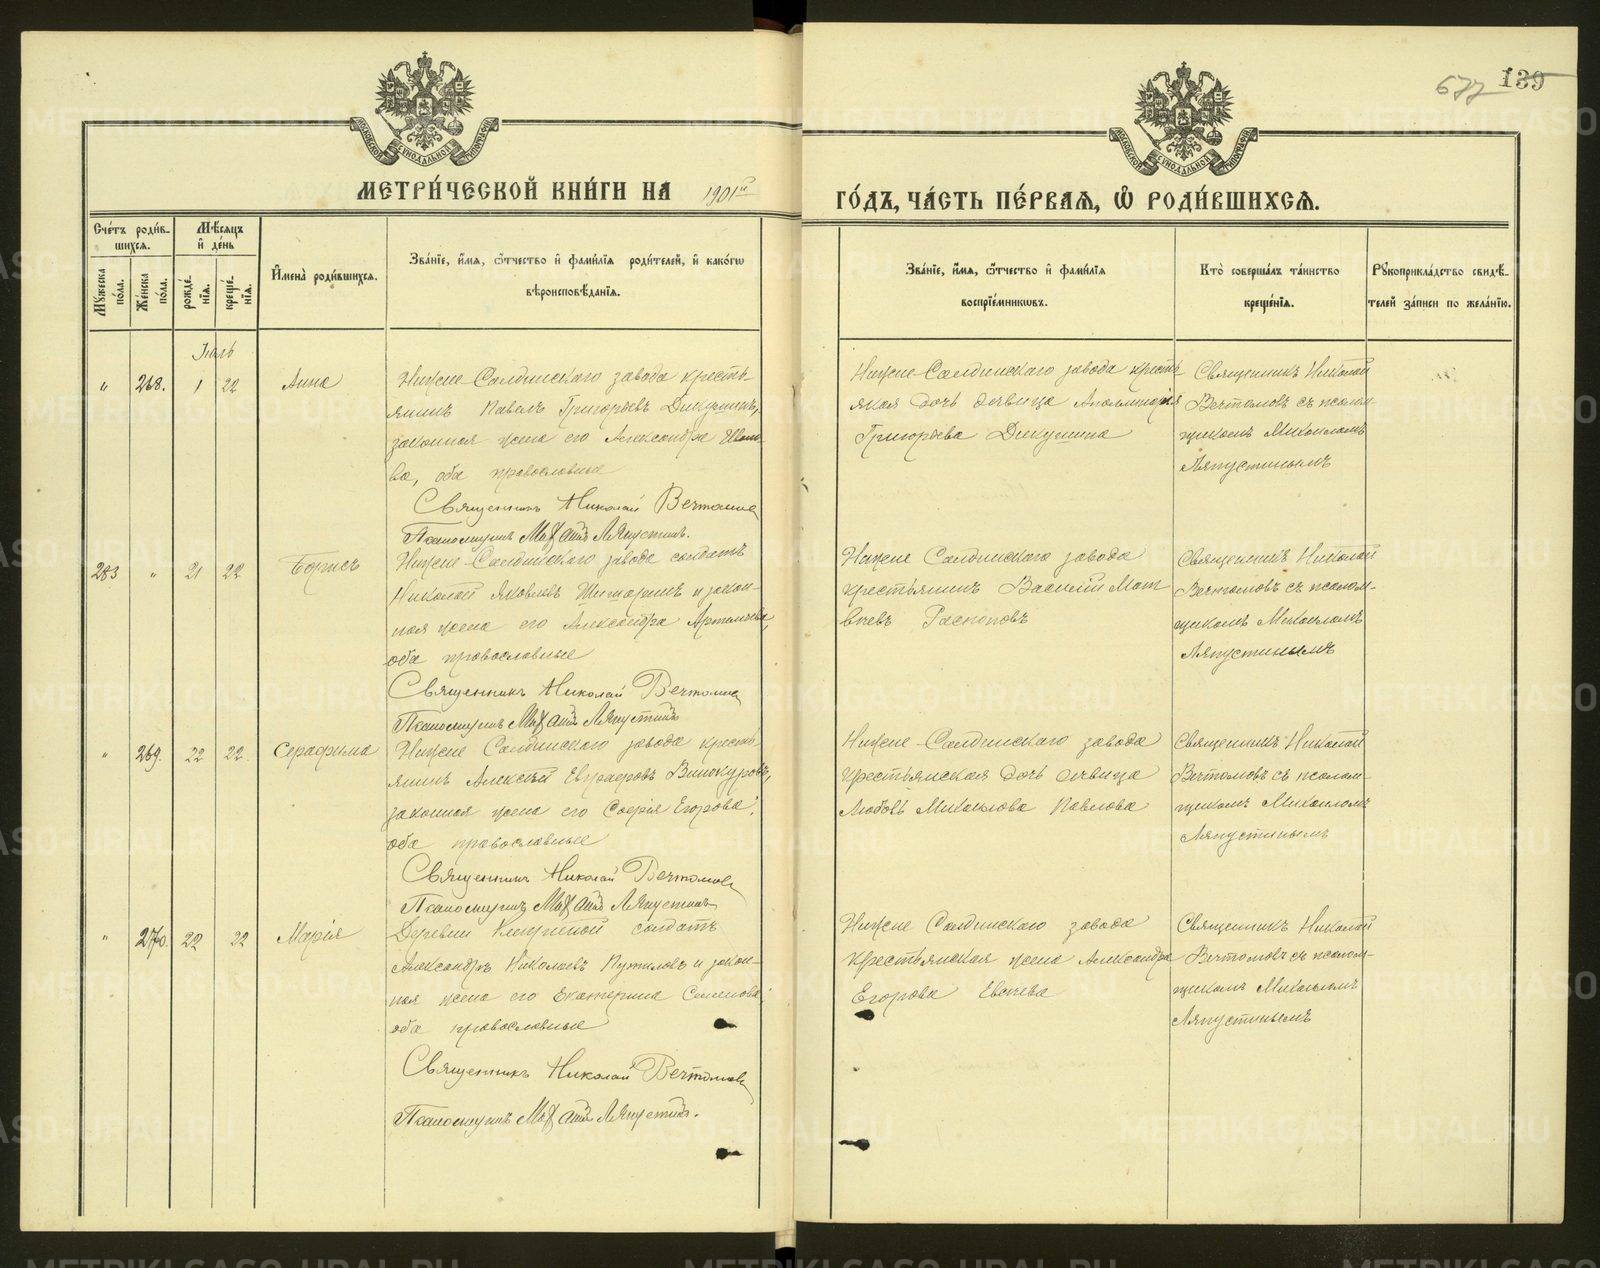 677 139
МЕТРИ́ЧЕСКОЙ КНИ́ГИ НА 1901й ГО́ДЪ, ЧА́СТЬ ПЕ́РВАѦ, Ѽ РОДИ́ВШИХСѦ.
Сче́тъ роди́в-
шихсѧ.
Мѣ́сѧцъ
и҆ де́нь
Мꙋ́жеска
по́ла.
Же́нска
по́ла.
рожде́-
нїѧ.
креще́-
нїѧ.
И҆мена̀ роди́вшихсѧ.
Зва́нїе, и҆́мѧ, ѻ҆́тчество и҆ фами́лїѧ роди́телей, и҆ како́гѡ
вѣроисповѣ́данїѧ.
Зва́нїе, и҆́мѧ, ѻ҆́тчество и҆ фами́лїѧ
воспрїе́мниковъ.
Кто̀ соверша́лъ та́инство
креще́нїѧ.
Рꙋкоприкла́дство свидѣ́-
телей за́писи по жела́нїю.
Іюль
" 268. 1 22 Анна
Нижне-Салдинскаго завода кресть-
янинъ Павелъ Григорьевъ Дикушинъ,
законная жена его Александра Ивано-
ва, оба православные
Священникъ Николай Вечтомовъ
Псаломщикъ Михаилъ Ляпустинъ.
Нижне-Салдинскаго завода кресть-
янская дочь девица Аполлинарія
Григорьева Дикушина
Священникъ Николай
Вечтомовъ съ псалом-
щикомъ Михаиломъ
Ляпустинымъ
283 " 21 22 Борисъ
Нижне-Салдинскаго завода солдатъ
Николай Яковлевъ и закон-
ная жена его Александра Артемьева,
оба православные
Священникъ Николай Вечтомовъ
Псаломщикъ Михаилъ Ляпустинъ
Нижне Салдинскаго завода
крестьянинъ Василій Мат
веевъ Распоповъ
Священникъ Николай
Вечтомовъ съ псалом-
щикомъ Михаиломъ
Ляпустинымъ
" 269. 22 22. Серафима
Нижне Салдинскаго завода кресть-
янинъ Алексей Евграфовъ Винокуровъ,
законная жена его Софія Егорова,
оба православные
Священникъ Николай Вечтомовъ
Псаломщикъ Михаилъ Ляпустинъ
Нижне-Салдинскаго завода
крестьянская дочь девица
Любовь Михаилова Павлова
Священникъ Николай
Вечтомовъ съ псалом-
щикомъ Михаиломъ
Ляпустинымъ
" 270. 22 22 Марія
Деревни солдатъ
Александръ Николаевъ Путиловъ и закон-
ная жена его Екатерина Семенова,
оба православные
Священникъ Николай Вечтомовъ
Псаломщикъ Михаилъ Ляпустинъ.
Нижне Салдинскаго завода
крестьянская жена Александра
Егорова Евсеева
Священникъ Николай
Вечтомовъ съ псалом-
щикомъ Михаиломъ
Ляпустинымъ
METRIKI.GASO-URAL.RU